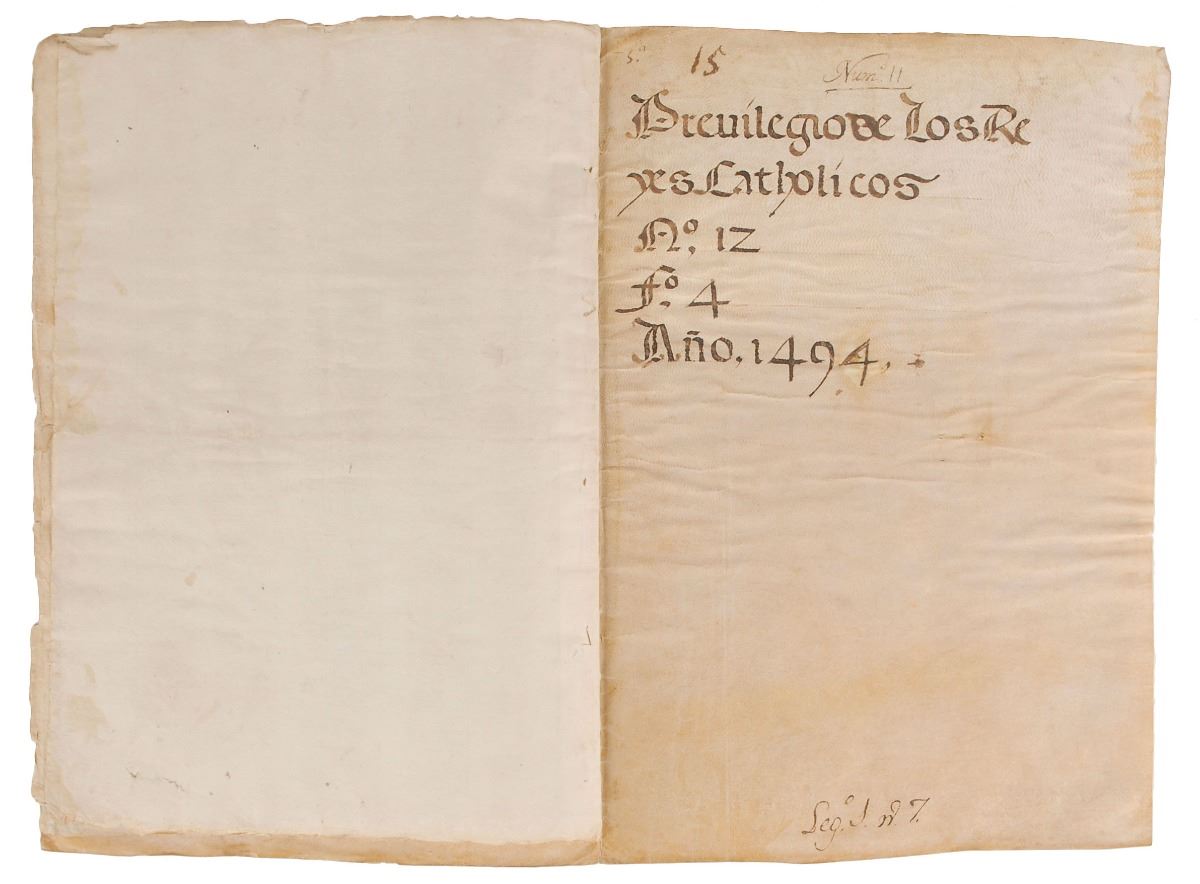 5.º 15 Num.º 11
Previlegio de Los Re
yes Catholicos
N.º 12
F.º 4
Año. 1494.
Leg.º 1. nº 7.